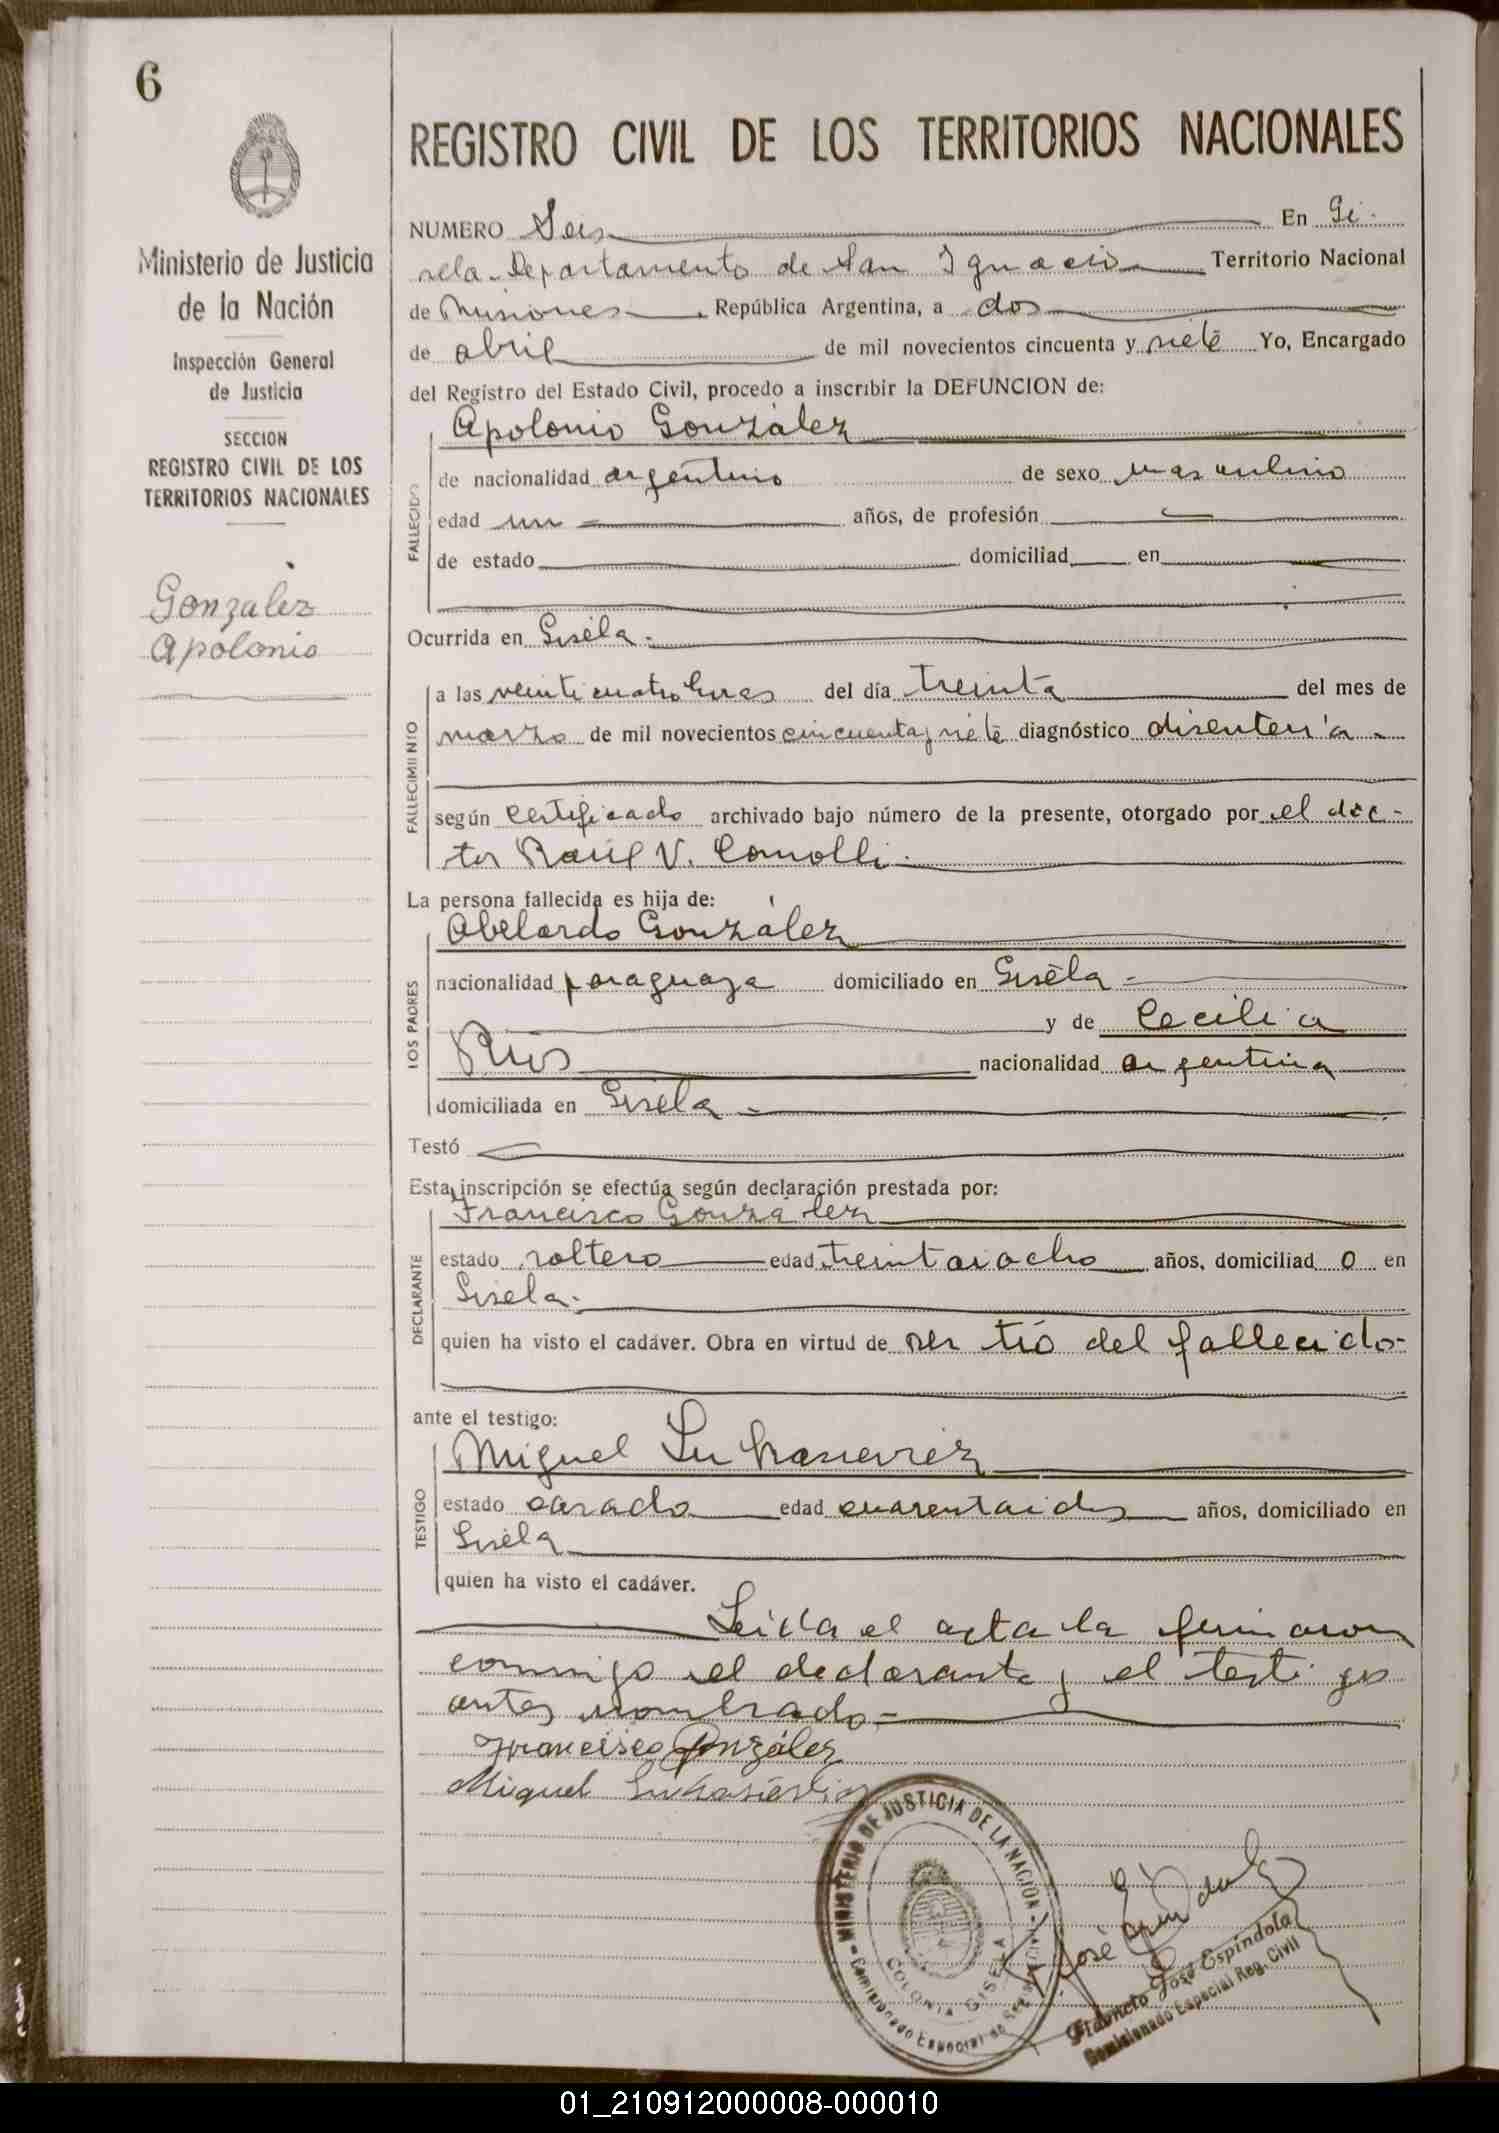 6
Ministerio de Justicia
de la Nación
Inspección General
de Justicia
SECCION
REGISTRO CIVIL DE LOS
TERRITORIOS NACIONALES
González
Apolonio
REGISTRO CIVIL DE LOS TERRITORIOS NACIONALES
NUMERO Seis En Gi-
sela - Departamento de San Ignacio Territorio Nacional
de Misiones República Argentina, a dos
de abril de mil novecientos cincuenta y siete Yo, Encargado
del Registro del Estado Civil, procedo a inscribir la DEFUNCION de:
Apolonio González
FALLECIDO
de nacionalidad argentino de sexo masculino
edad un años, de profesión
de estado domiciliad en
Ocurrida en Gisela.
FALLECIMIENTO
a las veinticuatro horas del día treinta del mes de
marzo de mil novecientos cincuenta y siete diagnóstico disentería
según certificado archivado bajo número de la presente, otorgado por el doc-
tor Raúl V. Comolli.
La persona fallecida es hija de:
Abelardo González
LOS PADRES
nacionalidad paraguaya domiciliado en Gisela
y de Cecilia
Ríos nacionalidad argentina
domiciliada en Gisela
Testó
Esta inscripción se efectúa según declaración prestada por:
Francisco González
DECLARANTE
estado soltero edad treintaiocho años, domiciliad o en
Gisela.
quien ha visto el cadáver. Obra en virtud de ser tío del fallecido-
ante el testigo:
Miguel Lukasievicz
TESTIGO
estado casado edad cuarentaidos años, domiciliado en
Gisela
quien ha visto el cadáver.
Leída el acta la firmaron
conmigo el declarante y el testigo
antes nombrado
Francisco González
Miguel Lukasievicz
MINISTERIO DE JUSTICIA DE LA NACIÓN
COLONIA GISELA
José Espíndola
José Espíndola
Comisionado Especial Reg. Civil
01_210912000008-000010